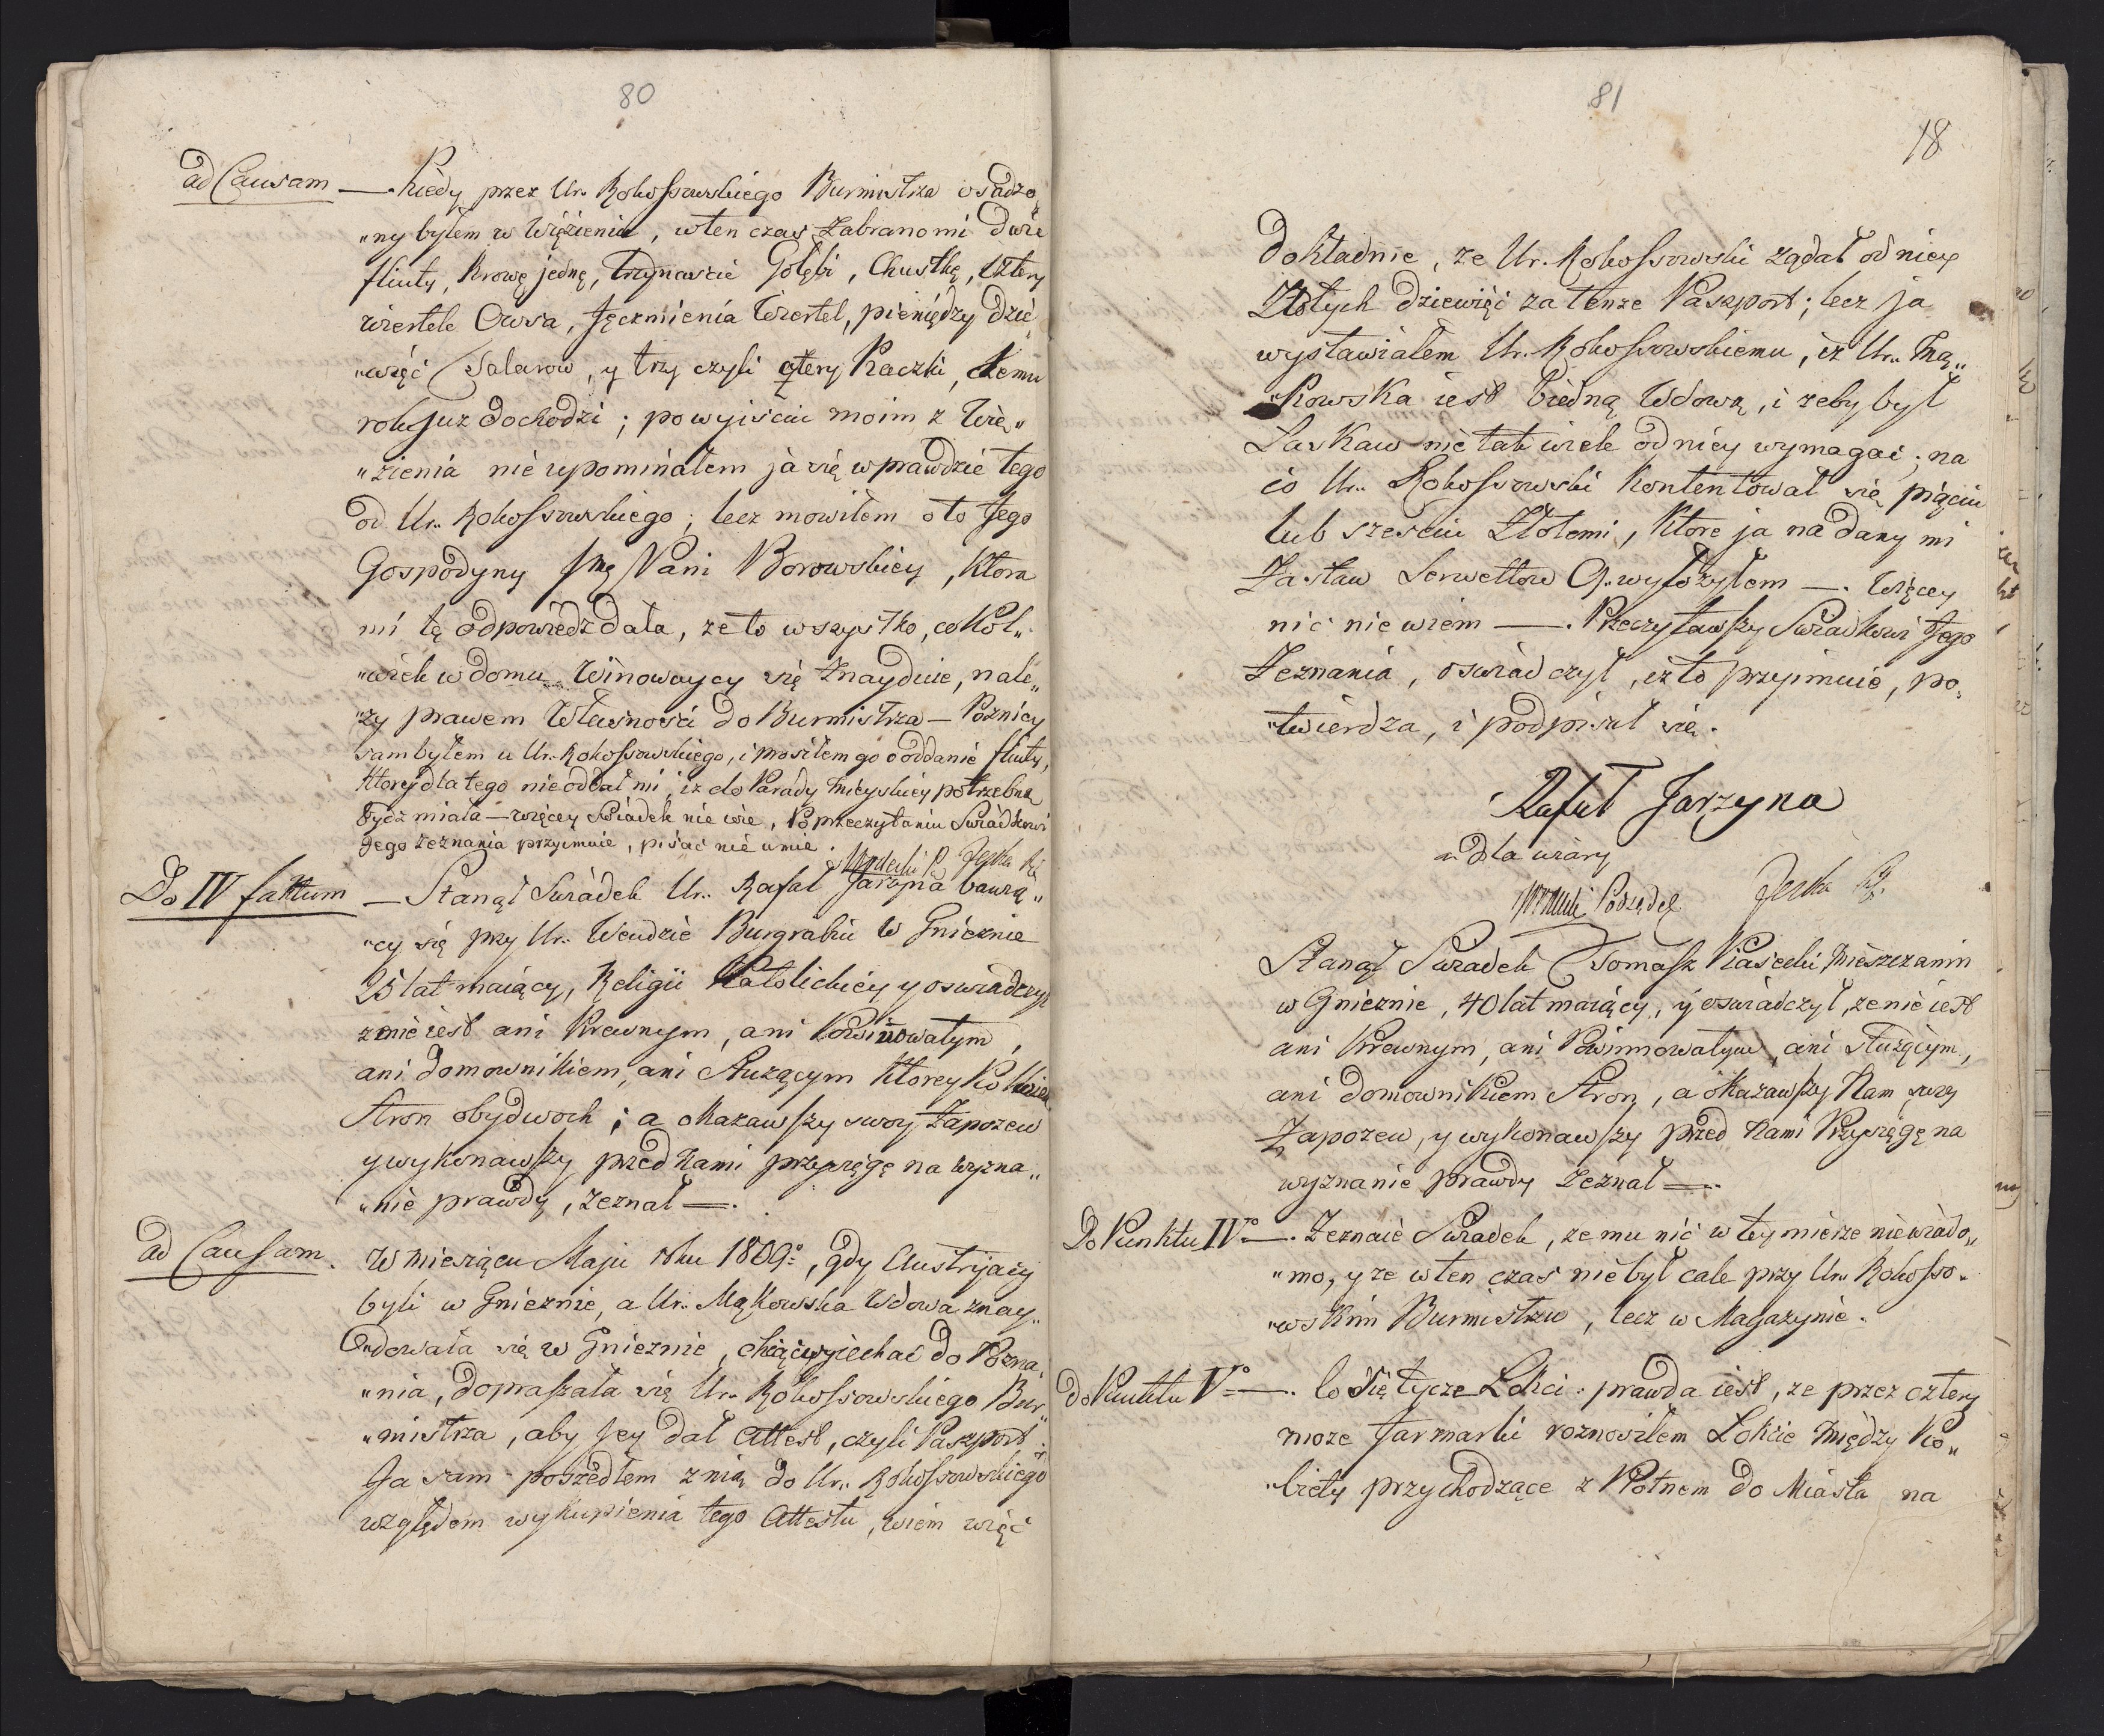 80
ad Causam —. Kiedy przez Ur. Rokossowskiego Burmistrza osadzo„
„ny byłem w Więzieniu, w ten czas zabrano mi dwie
flinty, Krowę jednę, trzynaście Gołębi, Chustkę, Cztery
wiertele Owsa, Jęczmienia Wiertel, pieniędzy dzie„
„więć Talarow, y trzy czyli cztery Kaczki, czemu
rok juz dochodzi; po wyiściu moim z Wię„
„zienia nie upominałem ja się wprawdzie tego
od Ur. Rokossowskiego; lecz mowiłem o to Jego
Gospodyny Pani Borowskiey, Ktora
mi tę odpowiedz dała, ze to wszystko, co Kol„
„wiek w domu Winowaycy się znayduie, nale„
„zy prawem Własności do Burmistrza — Pozniey
sam byłem u Ur. Rokossowskiego, i prosiłem go o oddanie flinty,
Ktorey dla tego nie oddał mi, iz do Parady Mieyskiey potrzebną
bydz miała — więcey Swiadek nie wie, Po przeczytaniu Swiadkowi
Jego zeznania przyimuie, pisać nie umie.
Jeska
Do IV faktum — Stanął Swiadek Ur. Rafał Jarzyna bawią„
„cy się przy Ur. Wendzie Burgrabiu w Gnieznie
25 lat maiący, Religii Katolickiey y oswiadczył
ze nie iest ani Krewnym, ani Powinowatym,
ani domownikiem, ani Służącym Ktorey Kolwiek
Stron obydwoch; a okazawszy swoy Zapozew
y wykonawszy przed Nami przysięgę na wyzna„
„nie prawdy, zeznał —.
ad Causam. W miesiącu Maju roku 1809º, gdy Austryacy
byli w Gnieznie, a Ur. Mąkowska Wdowa znay„
„dowała się w Gnieznie, chcąc wyiechać do Pozna„
„nia, dopraszała się Ur. Rokossowskiego Bur„
„mistrza, aby Jey dał Attest, czyli Paszport;
Ja sam poszedłem z nią do Ur. Rokossowskiego
względem wykupienia tego Attestu, wiem więc
81
18
dokładnie, ze Ur. Rokossowski ządał od niey
Złotych dziewięć za tenze Paszport; lecz ja
wystawiałem Ur. Rokossowskiemu, iz Ur. Mą„
„Kowska iest biedną Wdową, i zeby był
Łaskaw nie tak wiele od niey wymagać; na
co Ur. Rokossowski Kontentował się pięciu
lub sześciu Złotemi, Ktore ja na dany mi
Zastaw Serwettow 9. wyłożyłem —. Więcey
nic nie wiem —. Przeczytawszy Swiadkowi Jego
Zeznania, oswiadczył, iz to przyimuie, po„
„twierdza, i podpisał się.
Rafał Jarzyna
dla wiary
Podsędek Jeska
Stanął Swiadek Tomasz Piasecki Mieszczanin
w Gnieznie, 40 lat maiący, y oswiadczył, ze nie iest
ani Krewnym, ani Powinnowatym, ani służącym,
ani domownikiem Stron, a okazawszy Nam swoy
Zapozew, y wykonawszy przed Nami Przysięgę na
wyznanie prawdy zeznał —.
Do Punktu IVº —. Zeznaie Swiadek, ze mu nic w tey mierze nie wiado„
„mo, y ze w ten czas nie był cale przy Ur. Rokosso„
„wskim Burmistrzu, lecz w Magazynie.
do Punktu Vº —. Co się tycze Łokci: prawda iest, ze przez cztery
moze Jarmarki roznosiłem Łokcie Między Ko„
„biety przychodzące z Płotnem do Miasta na